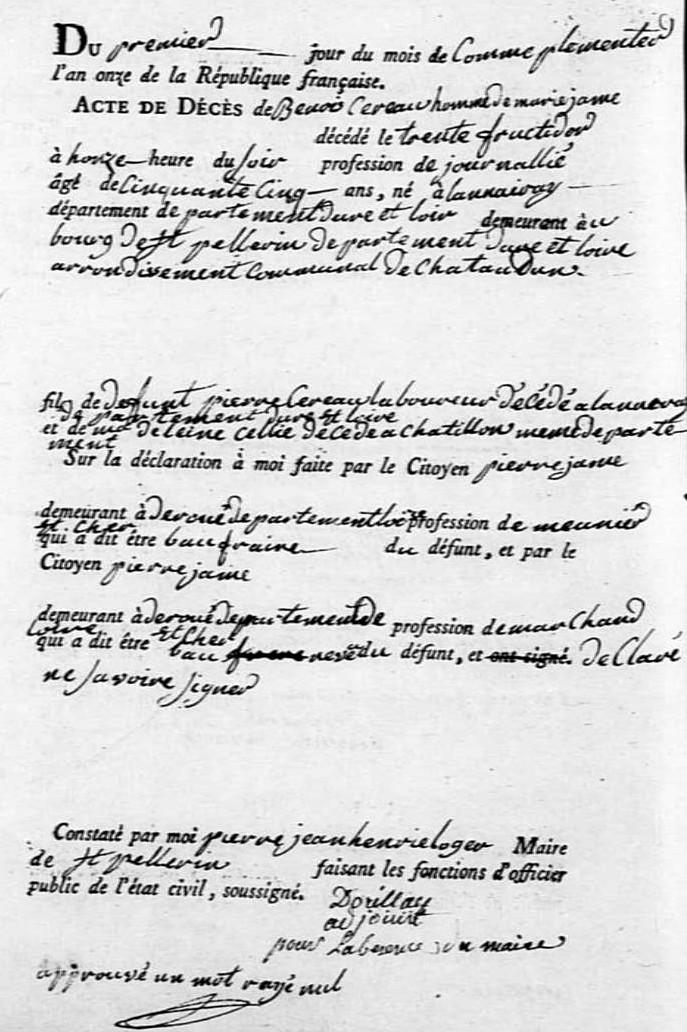 Du premier jour du mois de Comme plementer
l'an onze de la République française.
Acte de Décès de Benois Cereau homme de marie jame
décédé le trente fructidor
à honze heure du soir profession de journallié
âgé de Cinquante Cinq ans, né à lannairay
département de partement dure et loir demeurant à u
bourg de St pellerin departement dure et loire
arrondissement Communal de Chataudun.
fils de defunt pierre Cereau laboureur décédé a lanneray
de partement dure et loire
et de md deleine Cellié décédé a Chatillon meme departe-
ment
Sur la déclaration à moi faite par le Citoyen pierre jame
demeurant à deroué departement loire profession de meunier
et Cher
qui a dit être baufraire du défunt, et par le
Citoyen pierre jaime
demeurant à deroué departement de profession de marChand
loire et Cher
qui a dit être bau frere neveu du défunt, et ont signé. de Claré
ne savoire signer
Constaté par moi pierre jean henrie loger Maire
de St pellerin faisant les fonctions d'officier
public de l'état civil, soussigné. Dorillau
adjouint
pour Labsence du maire
approuvé un mot rayé nul